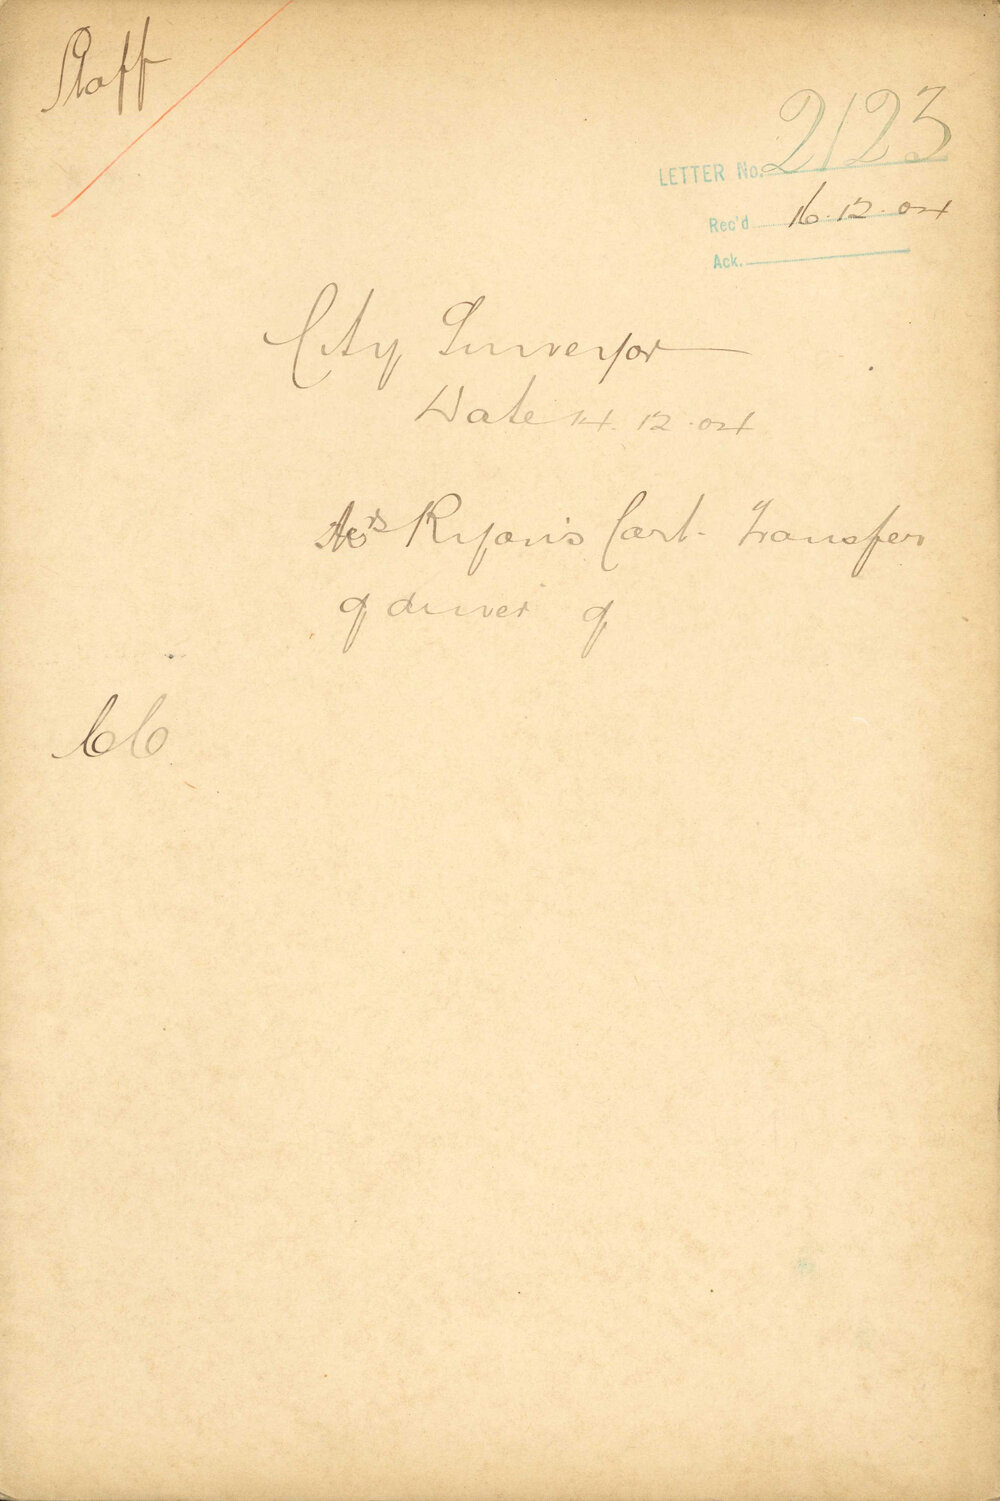 Staff
LETTER No. 2123
Rec'd 16.12.04
Ack.
City Surveyor
Date 14.12.04
Ryan's Cart. Transfer
of driver of